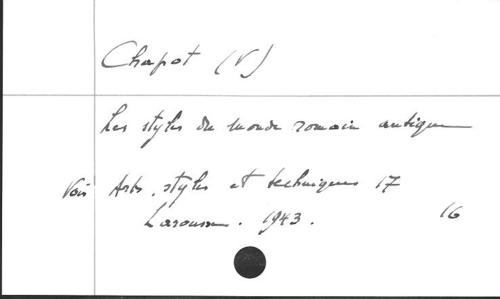 Chapot (V)
Les styles du monde romain antique
Voir Arts, styles et techniques 17
Larousse. 1943. 16